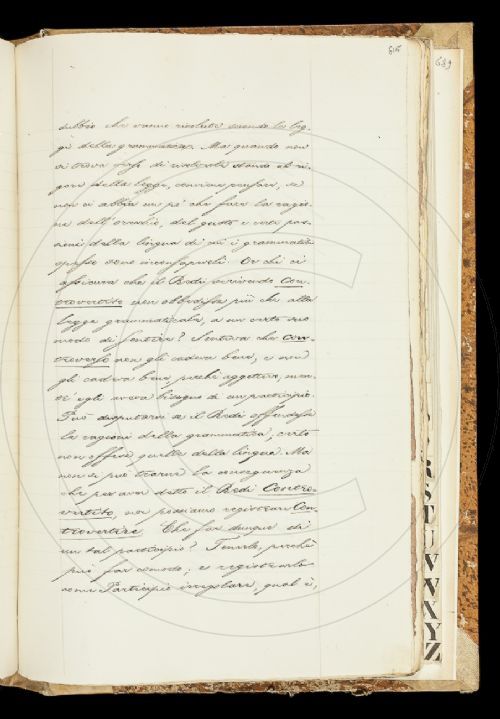 615
689
dubbio che vanno risolute secondo le leg-
gi della grammatica. Ma quando non
si trova modo di risolverli stando al ri-
gore della legge, conviene pensare, se
non vi abbia un po' che fare la ragio-
ne dell'orecchio, del gusto e certi
della lingua di cui i grammatici
spesso sono inconsapevoli. Or chi ci
assicura che il Redi scrivendo Con-
trovertito non obbedisse più che alla
legge grammaticale, a un certo suo
modo di sentire? Sentiva che con-
troverso non gli cadeva bene, e non
gli cadeva bene perchè aggettivo, men-
tre egli aveva bisogno di un participio.
Può disputarsi se il Redi offendesse
la ragione della grammatica, certo
non offese quella della lingua. Ma
non si può trarne la conseguenza
che per aver detto il Redi Contro-
vertito, noi possiamo registrare Con-
trovertire. Che far dunque di
un tal participio? Tenerlo, perchè
può far comodo; e registrarlo
come Participio irregolare, qual è,
R
S
T
U
V
W
X
Y
Z